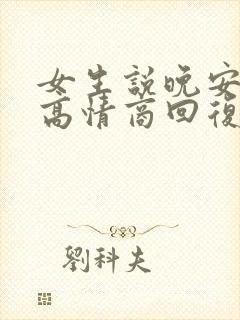 女生説晚安
高情商回復
劉科夫